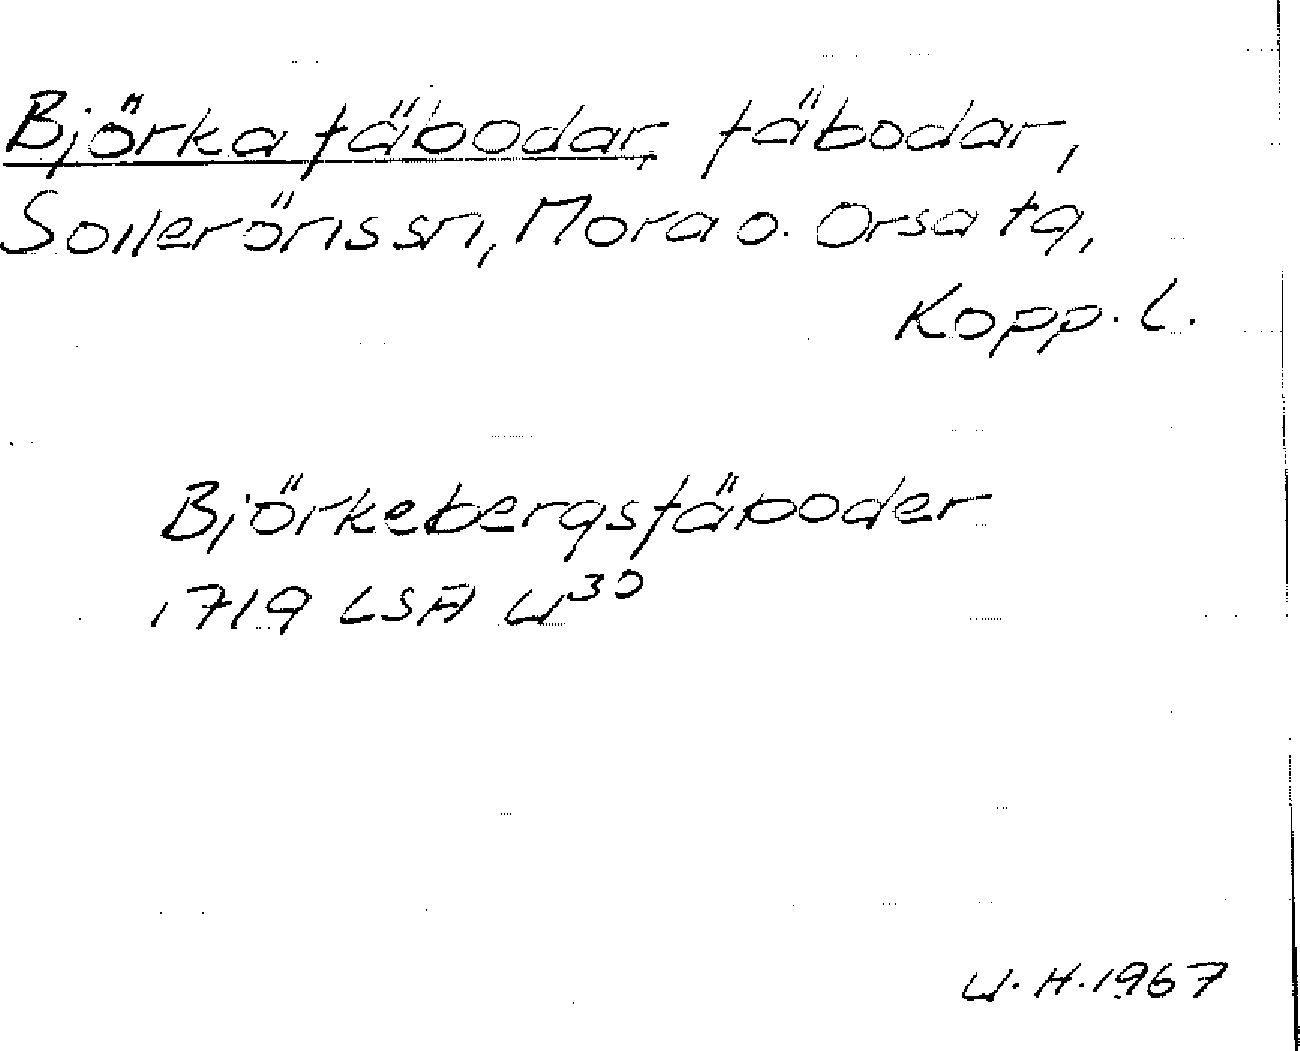 Björka fäbodar, fäbodar,
Solleröns sn, Mora o. Orsa tg,
Kopp. l.
Björkebergsfäboder
1719 LSA W30
W. H. 1967